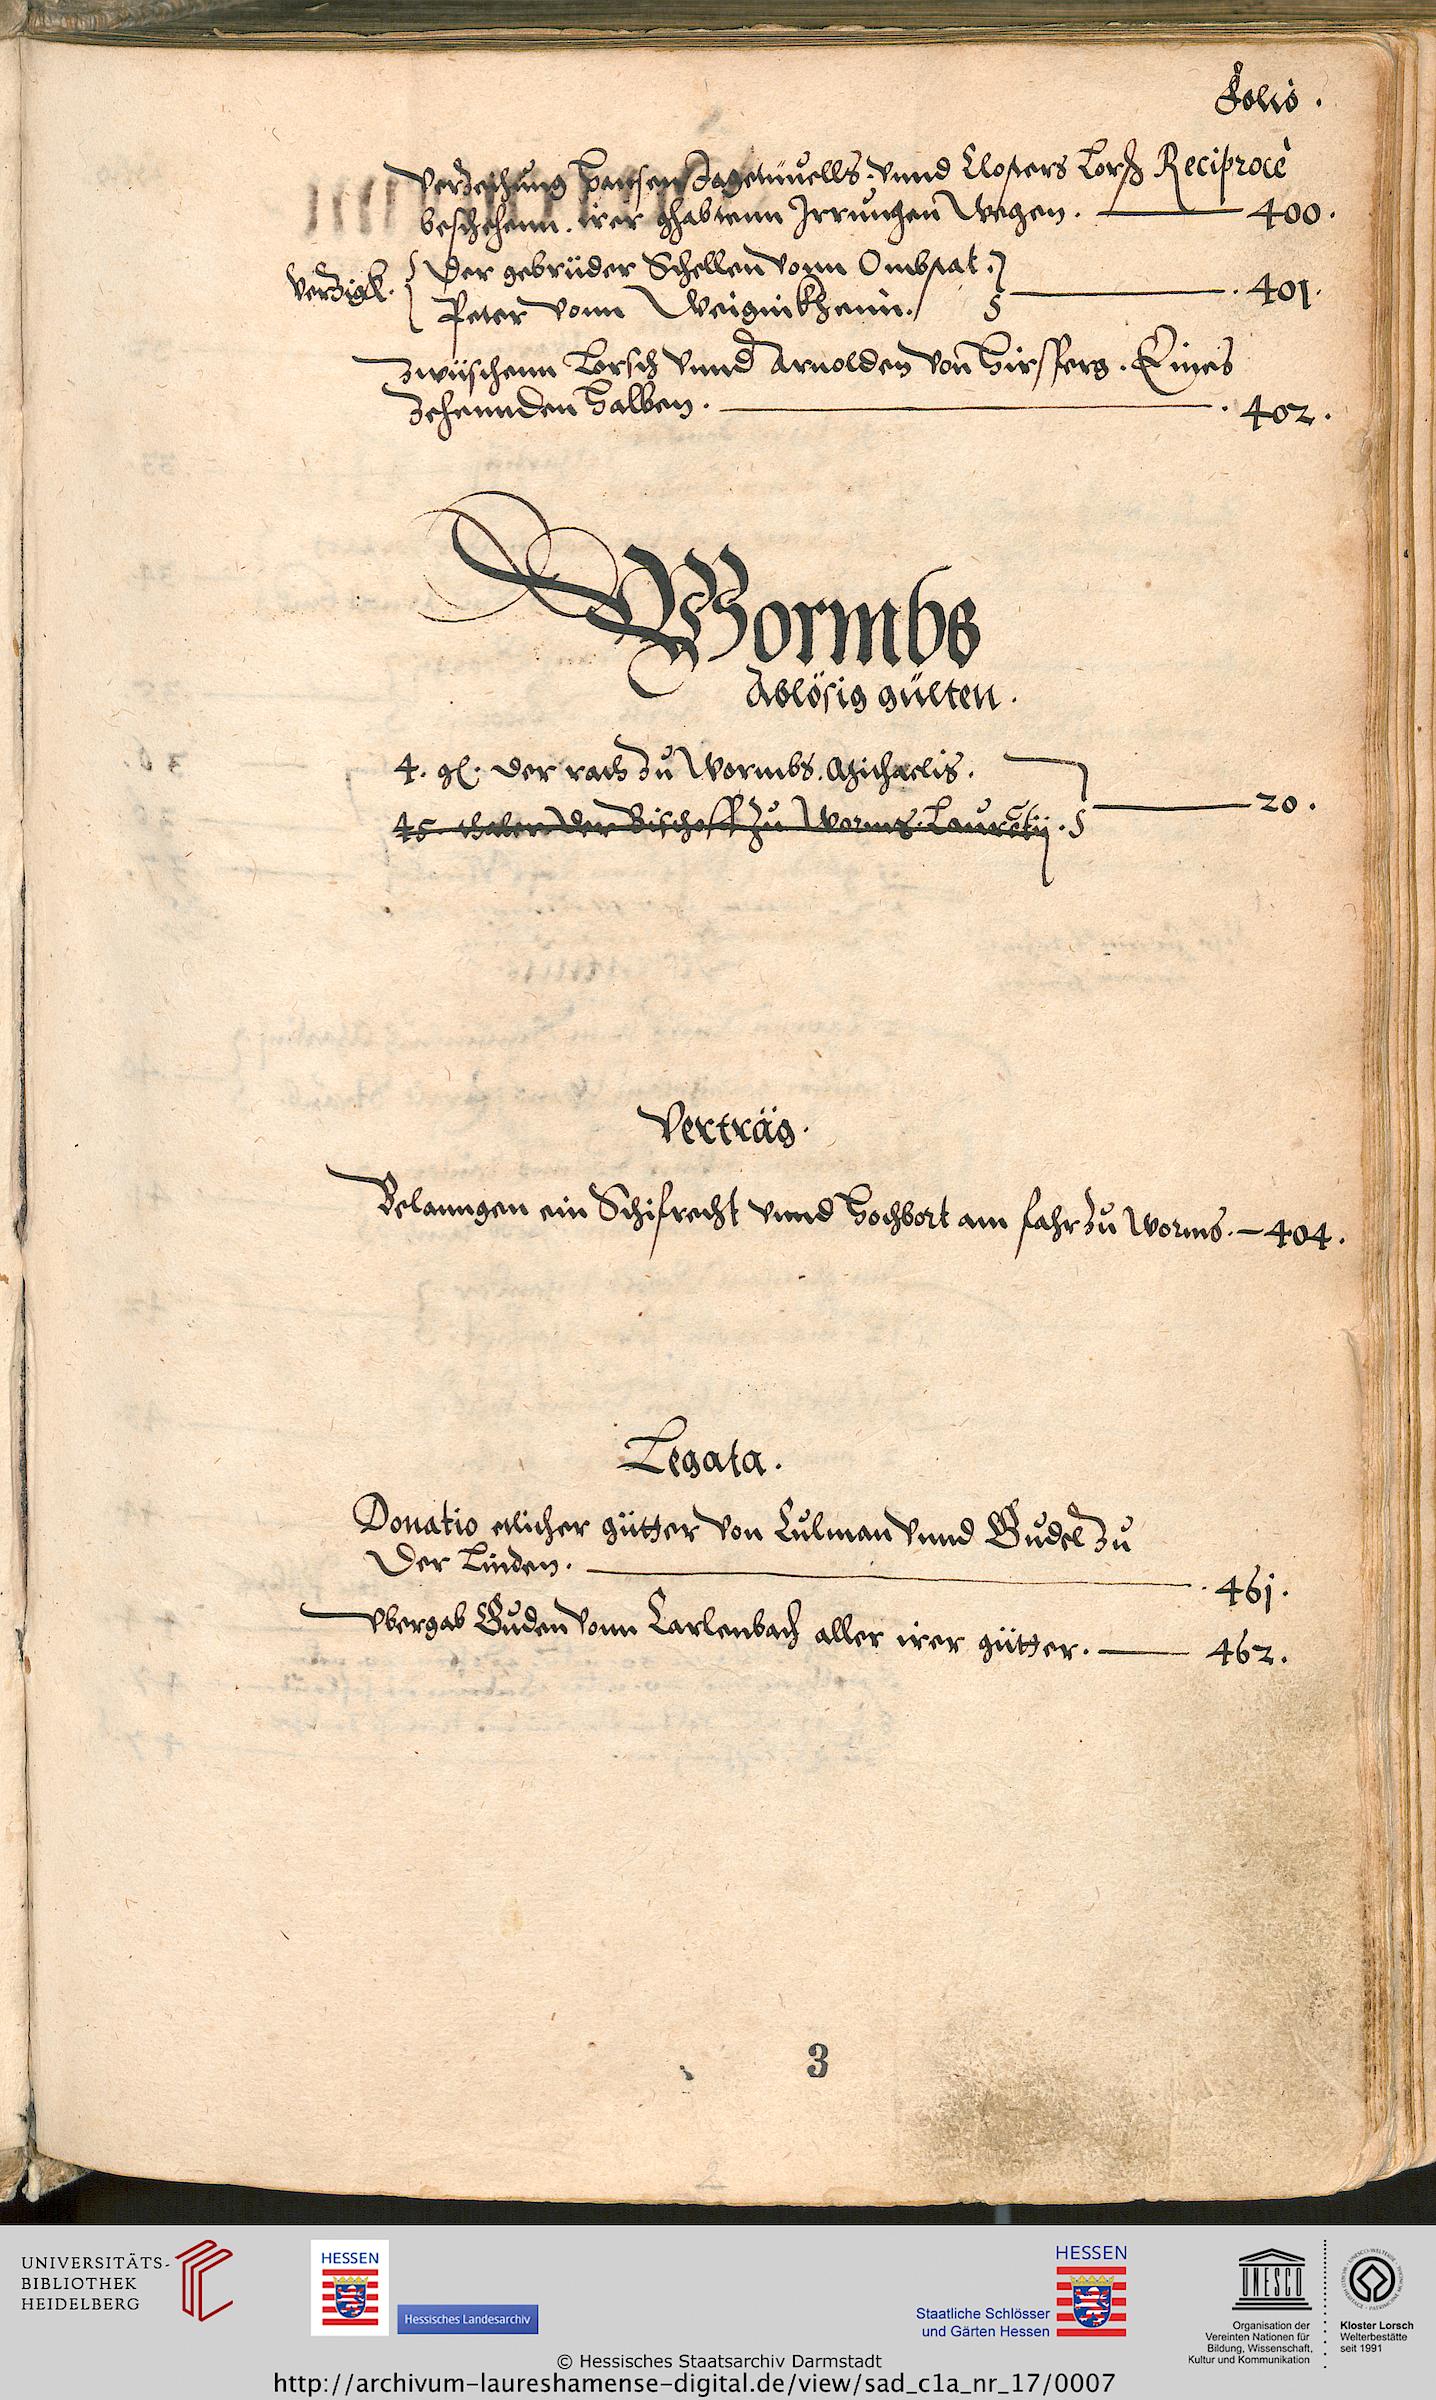 Folio.
Verzeihung Hansen vnnd Closters Lorß Reciprocè
beschehenn. irer ghabtenn Irrungen Wegen. 400.
Verzigk. Der gebrüder Schellen vonn Ombstat. 401.
Peter vonn
Zwüschenn Lorsch vnnd Arnolden von Hirsperg. Eines
Zehennden halben. 402.
Wormbs
Ablösig gülten.
4. gl. der rath zu Wormbs. Michaelis. 20.
45 thaler der Bischoff zu Worms. Laurētij.
Verträg.
Belanngen ein Schifrecht vnnd Hochbort am fahr zu Worms. 404.
Legata.
Donatio etlicher gütter von Culman vnnd Gudel zu
Der Linden. 461.
Vbergab Guden vonn Carlenbach aller irer gütter. 462.
3
UNIVERSITÄTS-
BIBLIOTHEK
HEIDELBERG
HESSEN
Hessisches Landesarchiv
HESSEN
Staatliche Schlösser
und Gärten Hessen
UNESCO
Organisation der
Vereinten Nationen für
Bildung, Wissenschaft,
Kultur und Kommunikation
Kloster Lorsch
Welterbestätte
seit 1991
© Hessisches Staatsarchiv Darmstadt
http://archivum-laureshamense-digital.de/view/sad_c1a_nr_17/0007